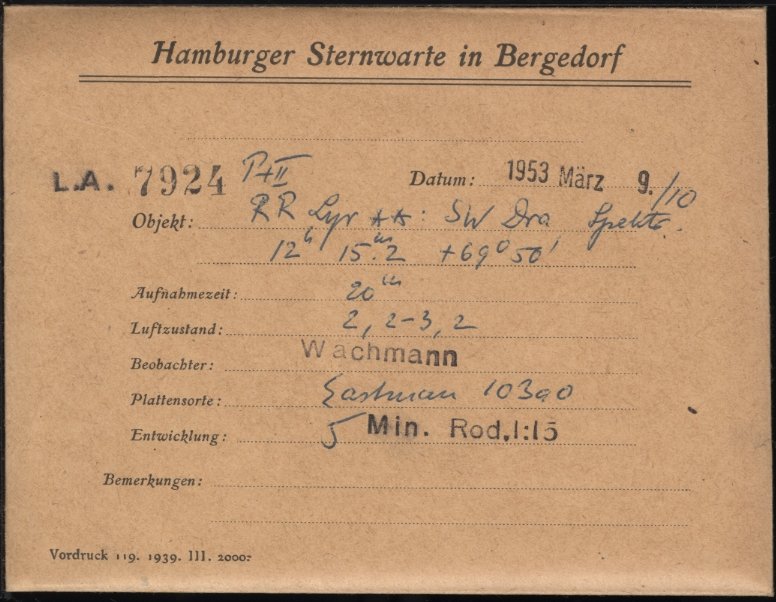 Hamburger Sternwarte in Bergedorf
L.A. 7924 P+II Datum: 1953 März 9./10
Objekt: RR Lyr **: SW Dra, Spektr.
12h 15m.2 +69° 50'
Aufnahmezeit: 20m
Luftzustand: 2, 2-3, 2
Beobachter: Wachmann
Plattensorte: Eastman 103a0
Entwicklung: 5 Min. Rod. 1:15
Bemerkungen:
Vordruck 119. 1939. III. 2000.